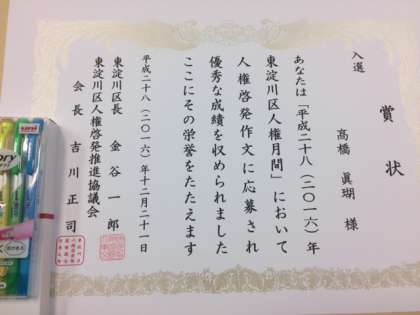 賞状
入選
高橋 眞瑚 様
あなたは「平成二十八(二〇一六)年
東淀川区人権月間」において
人権啓発作文に応募され
優秀な成績を収められました
ここにその栄誉をたたえます
平成二十八(二〇一六)年十二月二十一日
東淀川区長 金谷 一郎
東淀川区人権啓発推進協議会
会長 吉川 正司
uni